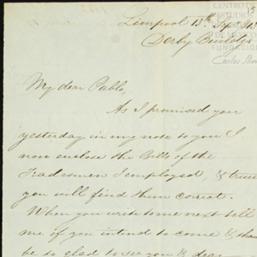 Liverpool 13th Sept
Derby Buildings
My dear Pablo,
As I promised you
yesterday in my note to you I
now enclose the Bills of the
Tradesmen I employed, & trust
you will find them correct.
When you write to me next tell
me if you intend to come
be so glad to see you & dear